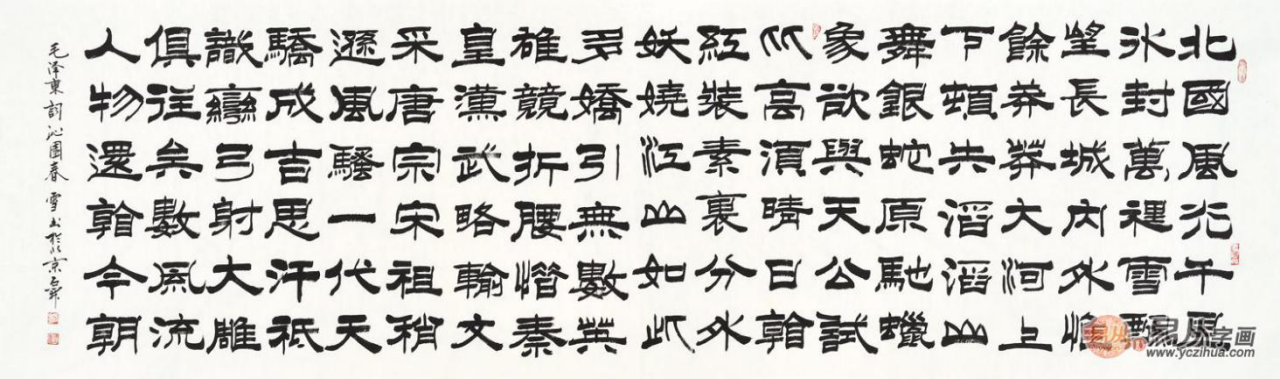 北國風光千里
氷封萬裡雪飄
望長城內外惟
餘莽莽大河上
下頓失滔滔山
舞銀蛇原馳蠟
象欲與天公試
比高須晴日看
紅裝素裹分外
妖嬈江山如此
多嬌引無數英
雄競折腰惜秦
皇漢武略輸文
采唐宗宋祖稍
遜風騷一代天
驕成吉思汗祇
識彎弓射大雕
俱往矣數風流
人物還看今朝
毛泽東詞沁園春雪书於北京
易从字画
www.yczihua.com